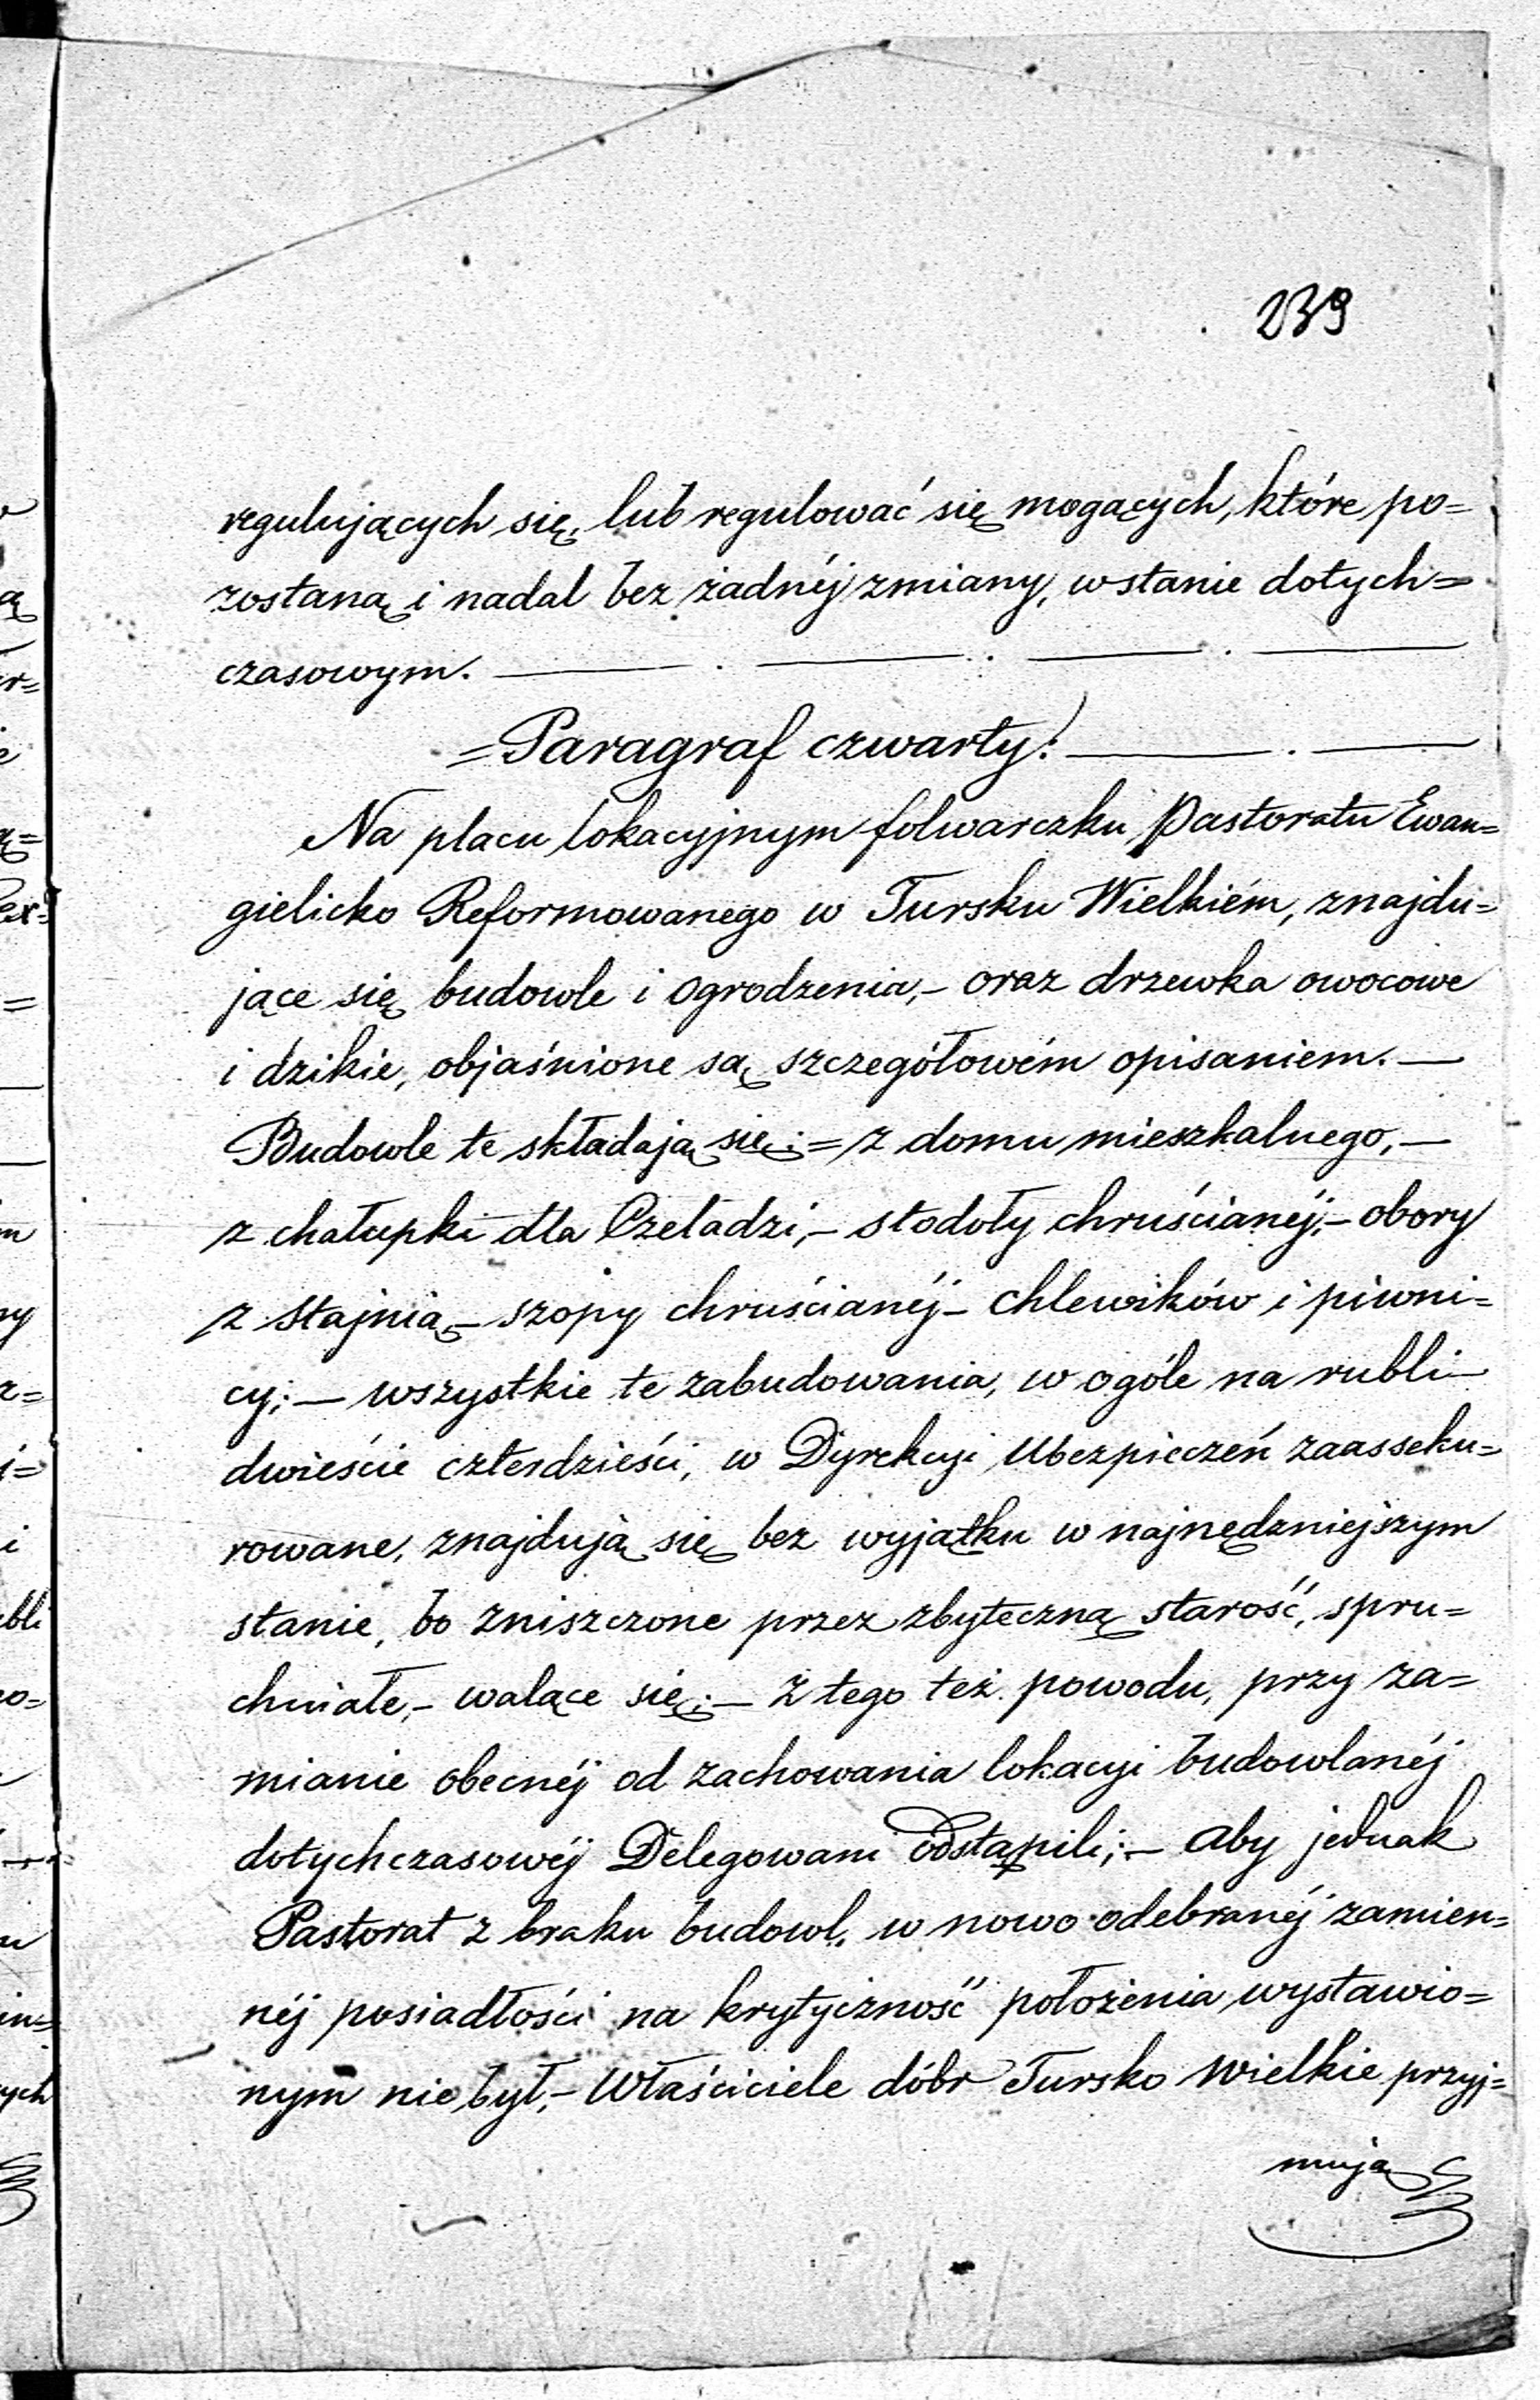 239
regulujących się, lub regulować się mogących, które po=
zostaną i nadal bez żadnéj zmiany, w stanie dotych=
czasowym. — . — . . — . —
=Paragraf czwarty: — . —
Na placu lokacyjnym folwarczku Pastoratu Ewan=
gielicko Reformowanego w Tursku Wielkiém, znajdu=
jące się budowle i ogrodzenia,- oraz drzewka owocowe
i dzikie, objaśnione są szczegółowém opisaniem. —
Budowle te składają się: = z domu mieszkalnego, —
z chałupki dla Czeladzi,- stodoły chruścianéj,- obory
z stajnią,- szopy chruścianéj- chlewików i piwni=
cy; — wszystkie te zabudowania, w ogóle na rubli —
dwieście czterdzieści, w Dyrekcyi Ubezpieczeń zaasseku=
rowane, znajdują się bez wyjątku w najnędzniejszym
stanie, bo zniszczone przez zbyteczną starość, spru=
chniałe,- walące się; — Z tego też powodu, przy za=
mianie obecnéj od zachowania lokacyi budowlanéj
dotychczasowéj Delegowani odstąpili; — Aby jednak
Pastorat z braku budowl, w nowo odebranéj zamien=
néj posiadłości na krytyczność położenia wystawio=
nym nie był,- Właściciele dóbr Tursko Wielkie przyj=
mują